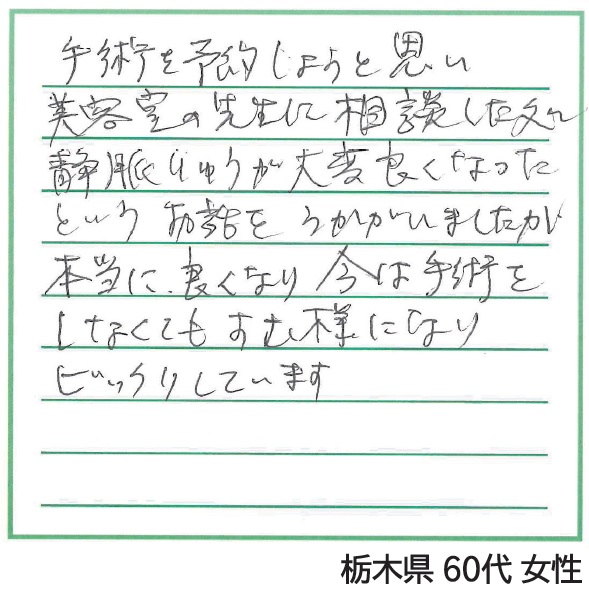 手術を予約しようと思い
美容室の先生に相談した処
静脈りゅうが大変良くなった
という お話を うかがいましたが
本当に、良くなり 今は手術を
しなくてもすむ様になり
ビックリしています
栃木県 60代 女性